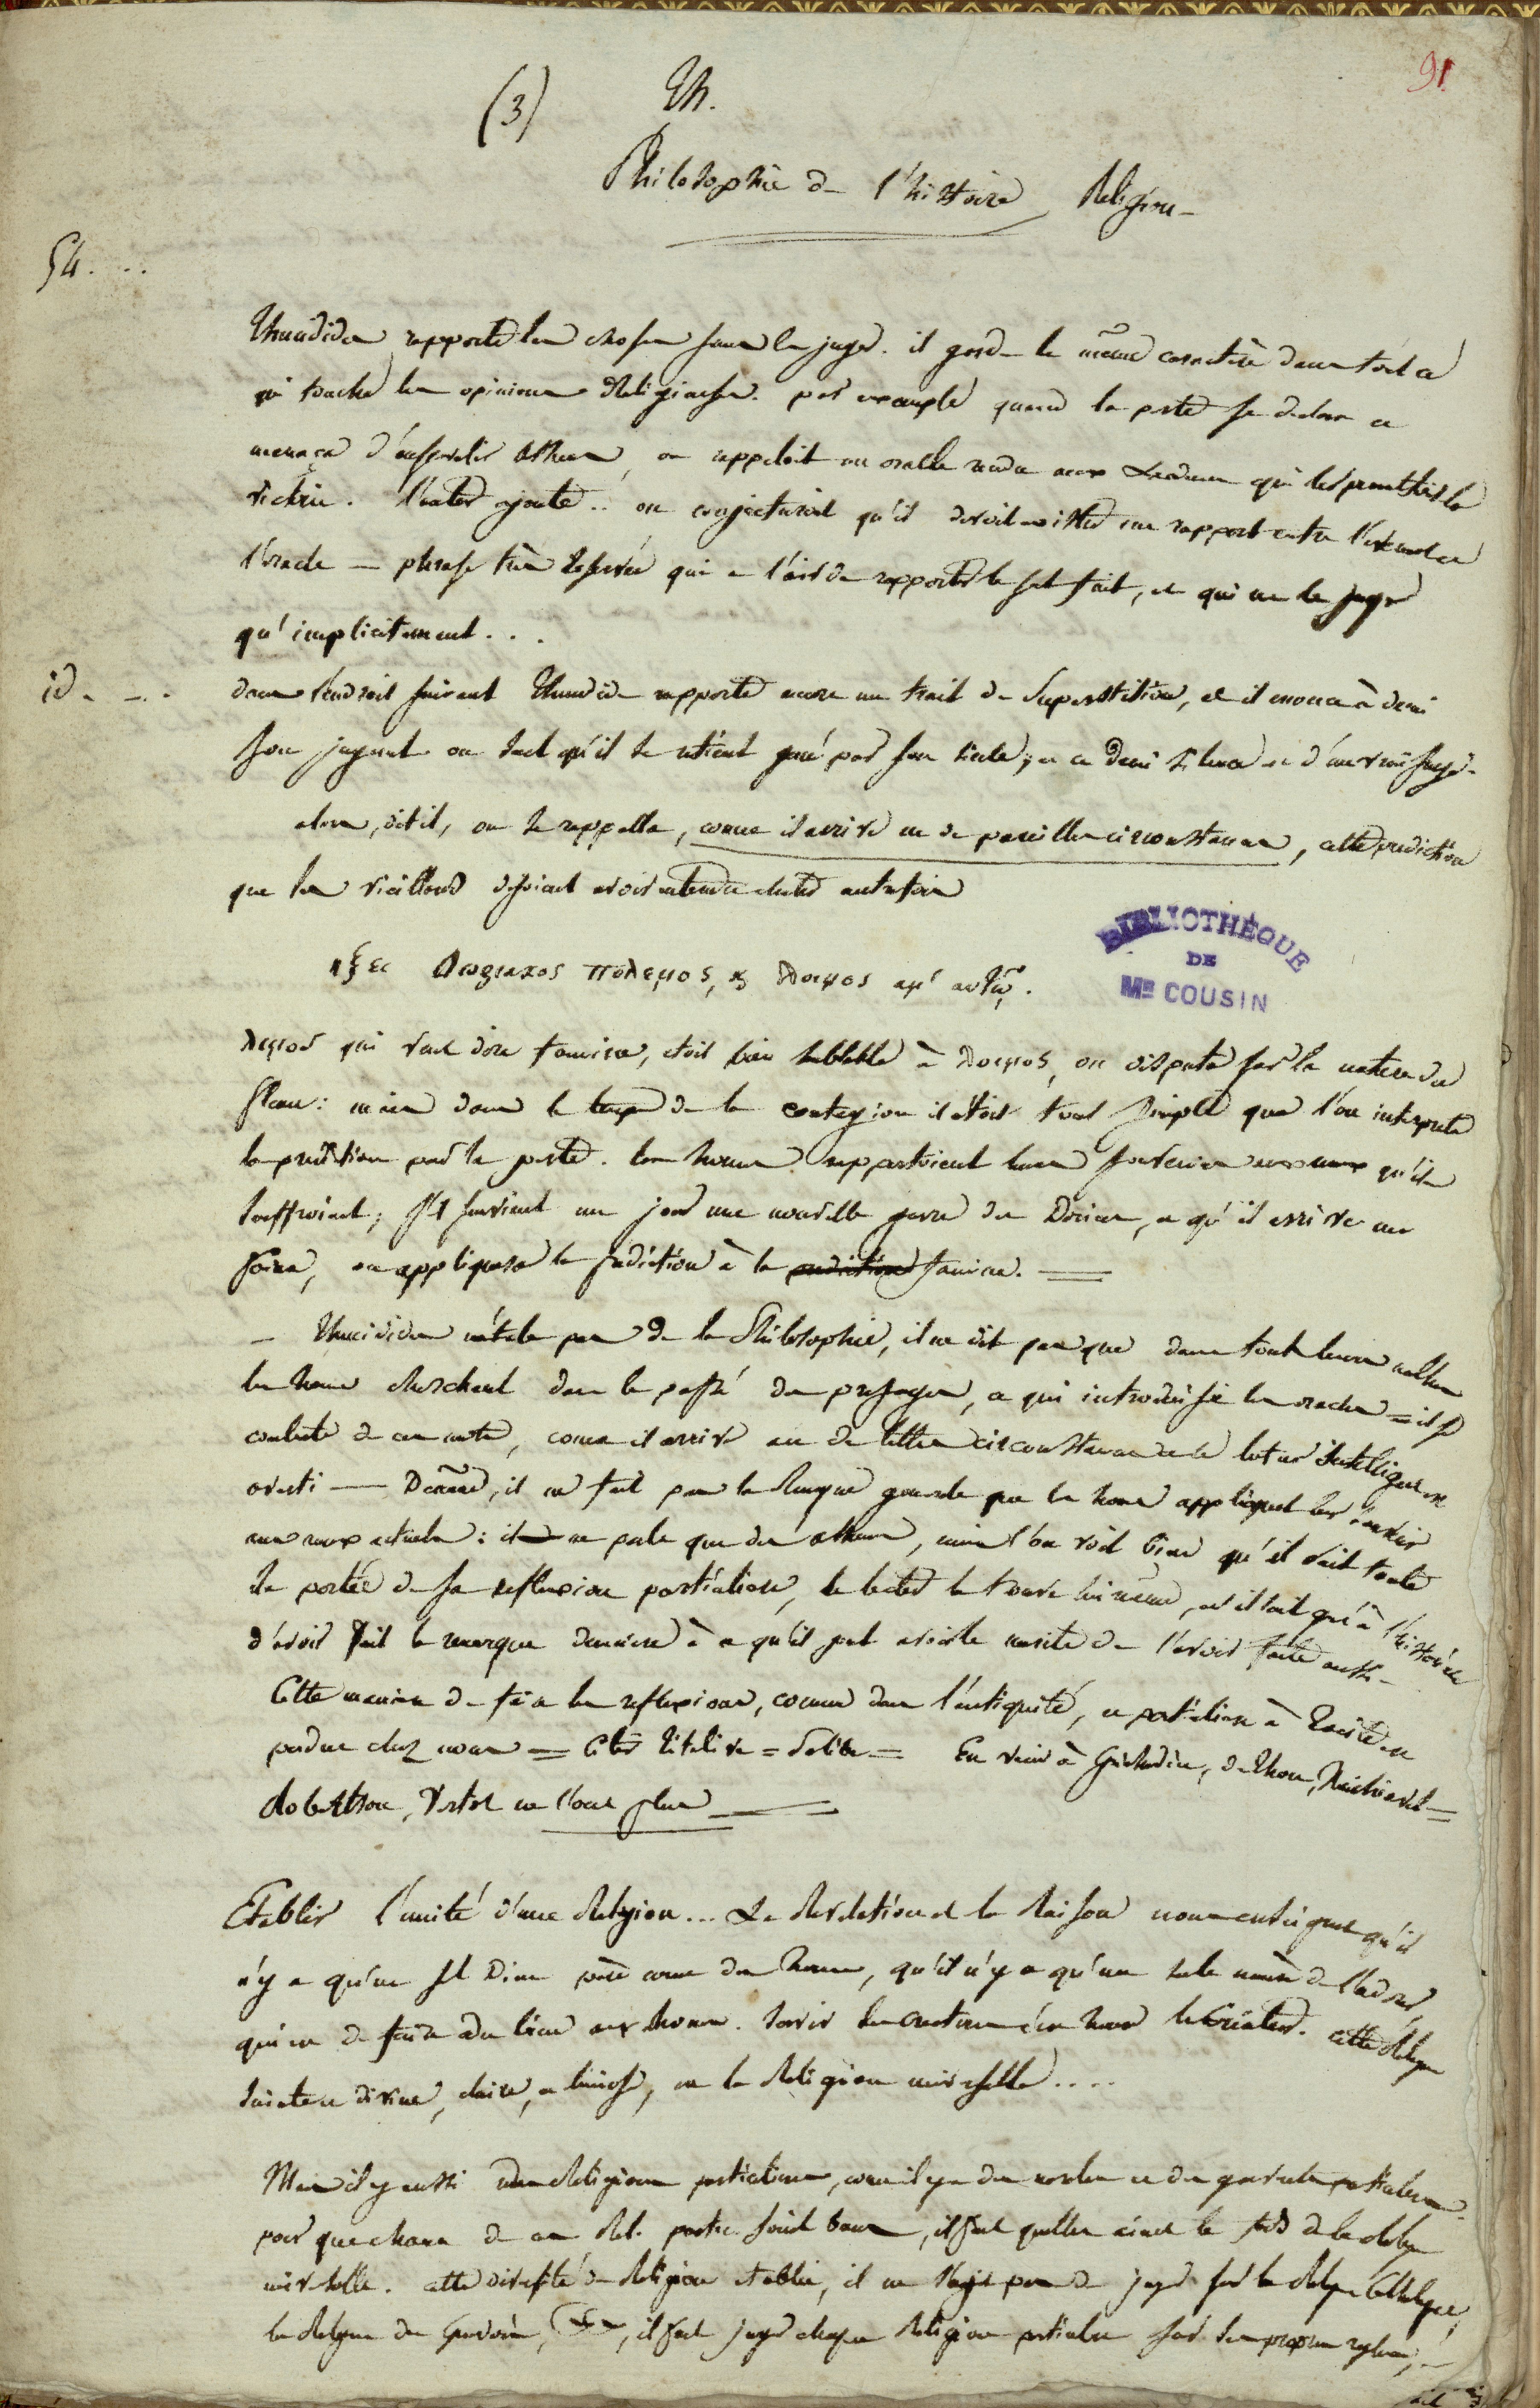 91
(3) Th.
Philosophie de l'histoire Religion
54. ...
Thucidides rapporte les choses sans les juger. il garde le même caractère dans tout ce
qui touche les opinions Religieuses. par exemple quand la peste se declara et
menaça d'ensevelir Athenes, on rappeloit un oracle rendu aux qui leur promettoit la
victoire. l'auteur ajoute.. on conjecturoit qu'il devoit exister un rapport entre l'evenement et
l'oracle — phrase très reservée qui a l'air de rapporter le seul fait, et qui ne le juge
qu'implicitement...
id. - ..
dans l'endroit suivant Thucidide rapporte encore un trait de Superstition, et il enonce à demi
son jugement on sent qu'il se retient gené par son siecle; et ce demi silence est d'un vrai sage.
alors, dit il, on se rappella, comme il arrive en de pareilles circonstances, cette prediction
que les vieillards disoient avoir entendu chanter autrefois
ηξει Δωριακος πολεμος, ϗ λοιμος αμ' αυτω.
λιμος qui veut dire famine, etoit bien semblable à λοιμος, on disputa sur la nature du
fleau: mais dans le temps de la contagion il étoit tout simple que l'on interpreta
la prediction par la peste. les hommes rapportoient leurs souvenirs aux maux qu'ils
souffroient; s'il survient un jour une nouvelle guerre des Doriens, et qu'il arrive une
famine, on appliquera la prediction à la prediction famine. —
— Thucidides n'étale pas de la Philosophie, il ne dit pas que dans tous leurs malheurs
les hommes cherchent dans le passé des presages, ce qui introduisit les oracles = il se
contente de ces mots, comme il arrive en de telles circonstances et le lecteur intelligent est
averti — De même, il ne fait pas la remarque generale que les hommes appliquent leurs souvenirs
aux maux actuels: il ne parle que des atheniens, mais l'on voit bien qu'il sait toute
la portée de sa reflexion particuliere, le lecteur la trouve lui même, et il sait gré à l'historien
d'avoir fait la remarque de maniere à ce qu'il peut avoir le merite de l'avoir faite aussi.
Cette maniere de faire les reflexions, commune dans l'antiquité, et particuliere à Tacite est
perdue chez nous = Citer Titelive = Polibe = En venir à Guichardin, de Thou, Machiavel =
Robertson, Vertot ne l'ont plus —
Etablir l'unité d'une Religion... La Revelation et la Raison nous enseignent qu'il
n'y a qu'un seul Dieu père commun des hommes, qu'il n'y a qu'une seule manière de l'adorer,
qui est de faire du bien aux hommes. servir les creatures c'est honorer le Créateur. cette Religion
sainte et divine, claire, et lumineuse, est la Religion universelle....
Mais il y a aussi des Religions particulieres, comme il y a des et des particuliers.
pour que chacune de ces Rel. partic. soient bonnes, il faut qu'elles aient le fonds de la Religion
universelle. cette diversité de Religion etablie, il ne s'agit pas de juger sur la Religion Catholique,
la Religion des , il faut juger chaque Religion particuliere sur ses propres regles,
BIBLIOTHÈQUE
DE
MR COUSIN